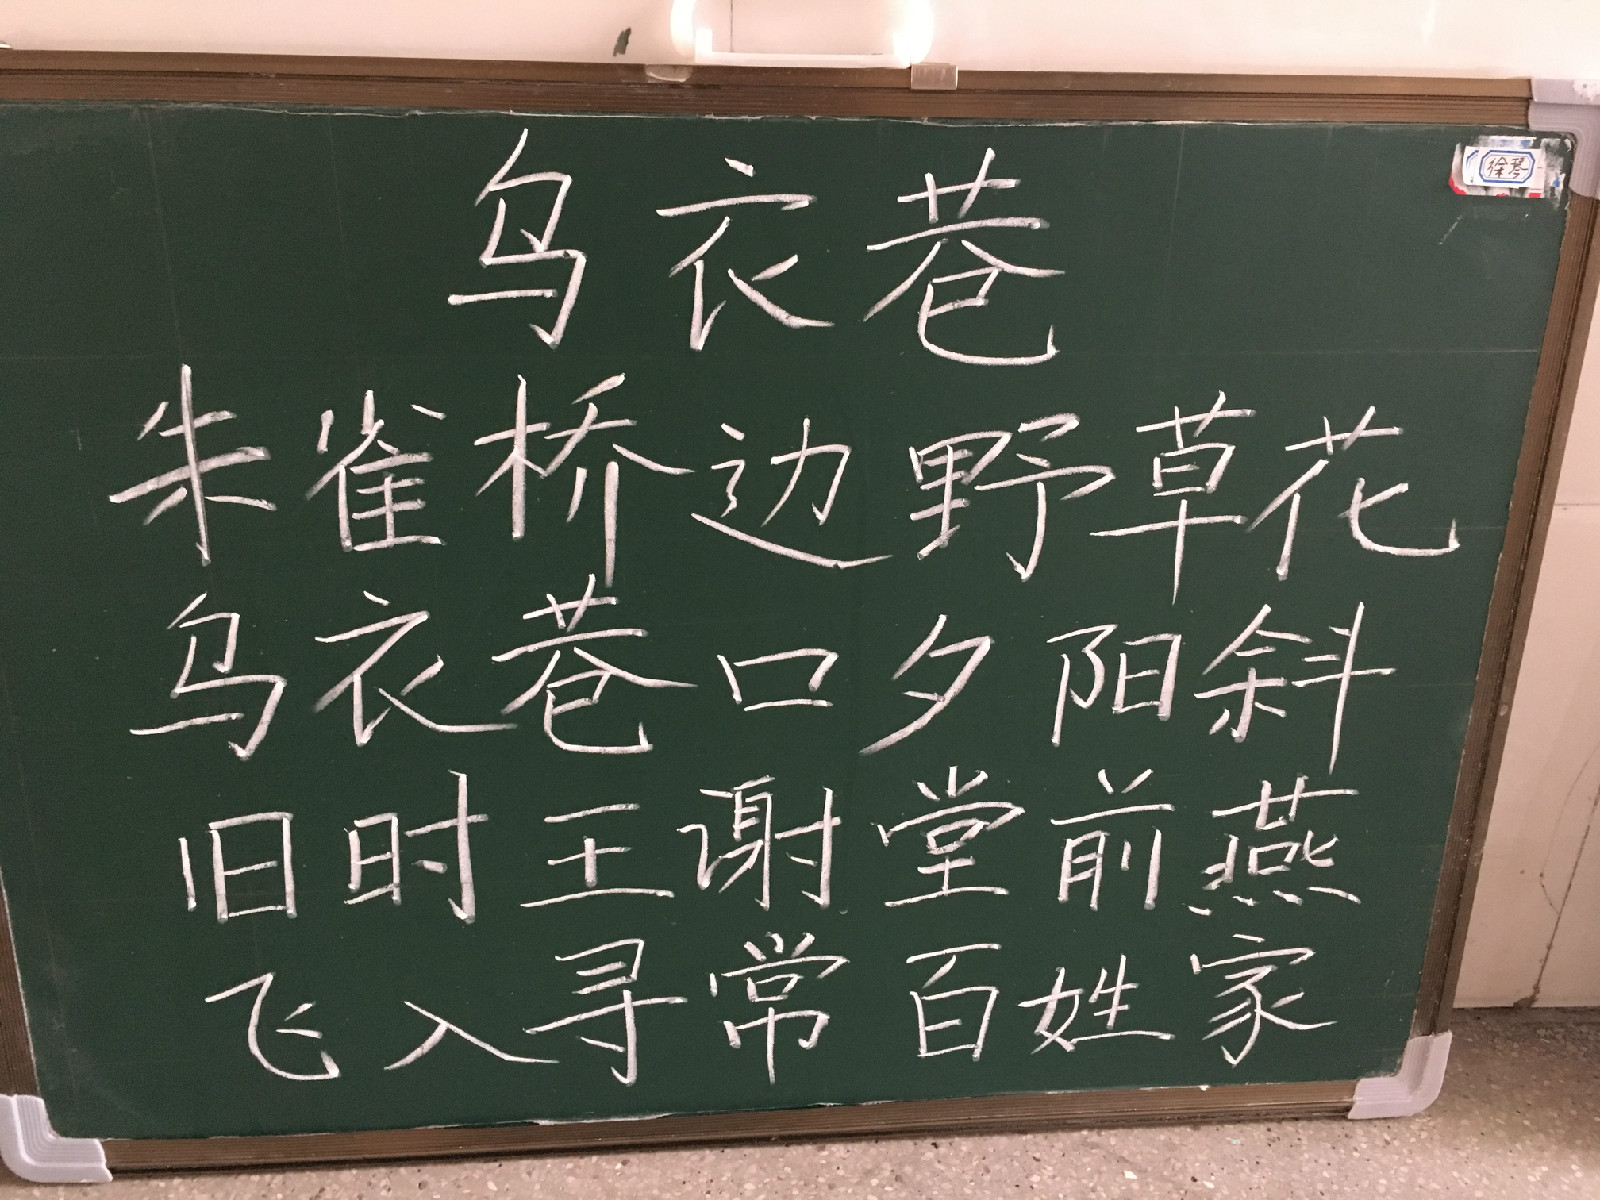 乌衣巷
徐琴
朱雀桥边野草花
乌衣巷口夕阳斜
旧时王谢堂前燕
飞入寻常百姓家